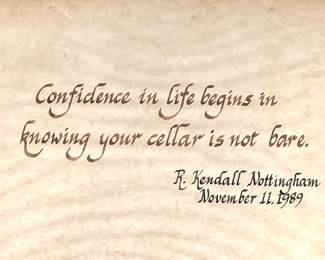 Confidence in life begins in
knowing your cellar is not bare.
R. Kendall Nottingham
November 11, 1989